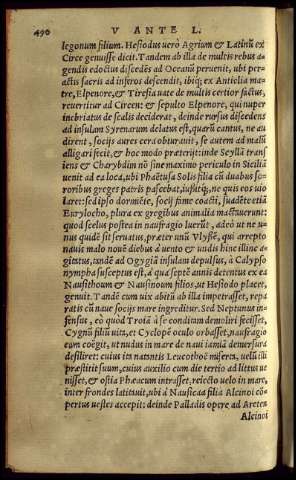 490 V ANTE L.
legonum filium. Hesiodus uerò Agrium & Latinũ ex
Circe genuisse dicit. Tandem ab illa de multis rebus a-
gendis edoctus discedēs ad Oceanũ peruenit, ubi per-
actis sacris ad inferos descendit, ibiq; ex Anticlia ma-
tre, Elpenore, & Tiresia uate de multis certior factus,
reuertitur ad Circen: & sepulto Elpenore, qui nuper
inebriatus de scalis deciderat, deinde rursus discedens
ad insulam Syrenarum delatus est, quarũ cantus, ne au
dirent, socijs aures cera obturauit, se autem ad malũ
alligari fecit, & hoc modo prateriȷt: inde Scyllā trans
iens & Charybdim nõ sine maximo periculo in Siciliā
uenit ad ea loca, ubi Phaëtusa Solis filia cũ duabus so-
roribus greges patris pascebat, iußitq́; ne quis eos uio
laret: sed ipso dormiẽte, socij fame coacti, suadẽte etiā
Eurylocho, plura ex gregibus animalia mactuerunt:
quod scelus postea in naufragio luerũt, adeò ut ne u-
nus quidē sit seruatus, præter unũ Vlyssē, qui arrepto
nauis malo nouē diebus à uento & undis hinc illinc a-
gitatus, ixndē ad Ogygiā insulam depulsus, à Calypso
nympha susceptus est, à qua septē annis detentus ex ea
Nausithoum & Nausinoum filios, ut Hesiodo placet,
genuit. Tandē cum uix abitũ ab illa impetrasset, repa
ratis cũ naue socijs mare ingreditur. Sed Neptunus in-
fensus, eò quod Troiā à se conditam demoliri fecisset,
Cygnũ filiũ uita, et Cyclopē oculo orbasset, naufragiũ
eum coëgit, ut nudus in mare de naui iamiā demersura
desiliret: cuius ita natantis Leucothoë miserta, uelũ illi
præstitit suum, cuius auxilio cum die tertio ad littus ue
nisset, & ostia Phæacum intrasset, reiecto uelo in mare,
inter frondes latitauit, ubi à Nausicaa filia Alcinoi cõ-
pertus uestes accepit: deinde Palladis opere ad Areten
Alcinoi